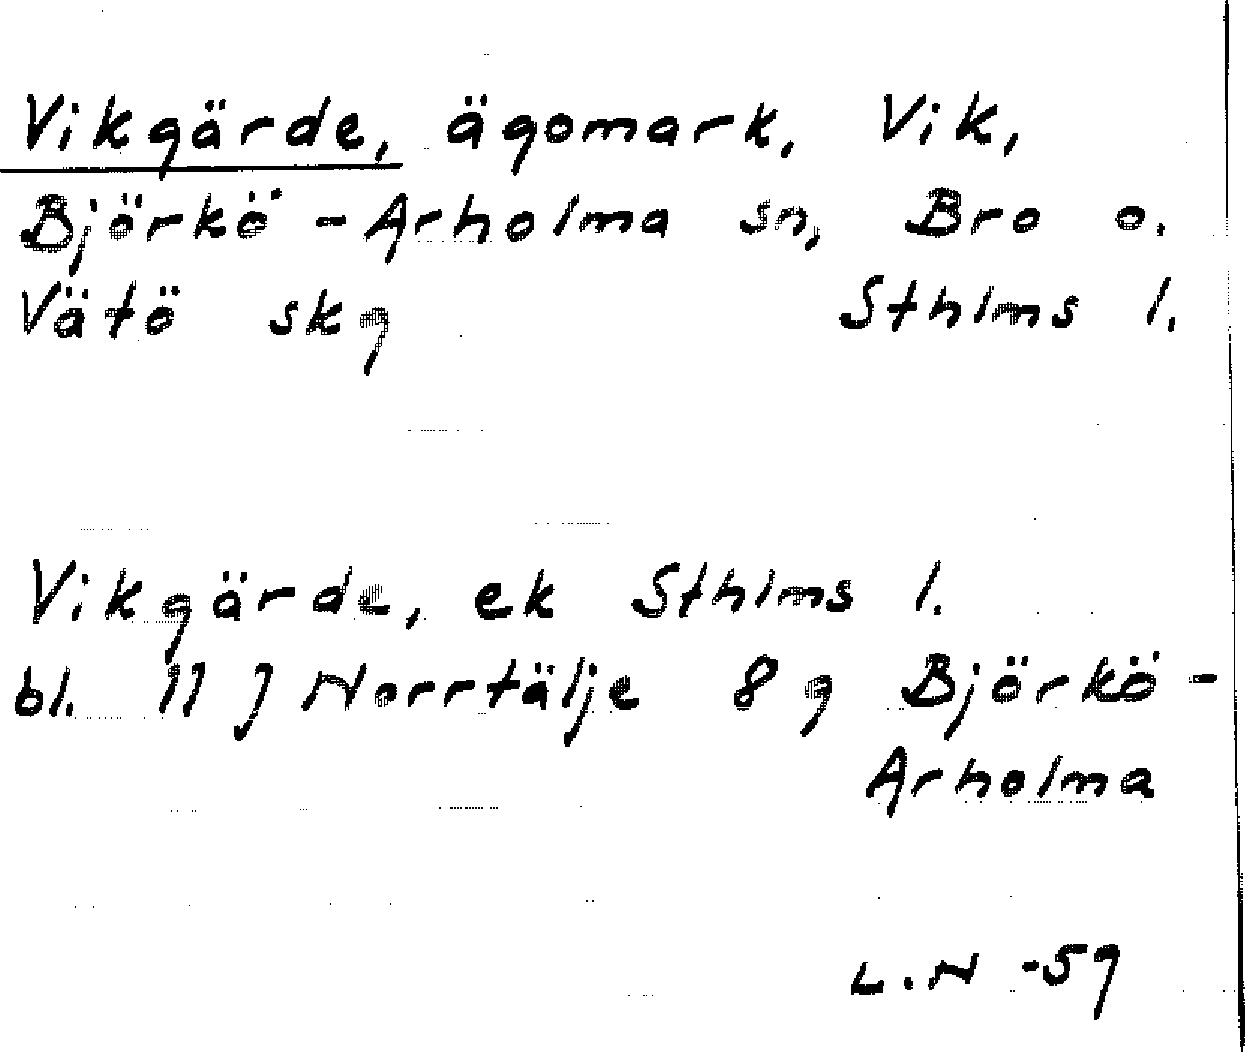 Vikgärde, ägomark, Vik,
Björkö-Arholma sn, Bro o.
Vätö skg Sthlms l.
Vikgärde, ek Sthlms l.
bl. 11 J Norrtälje 8 g Björkö-
Arholma
L.N -59